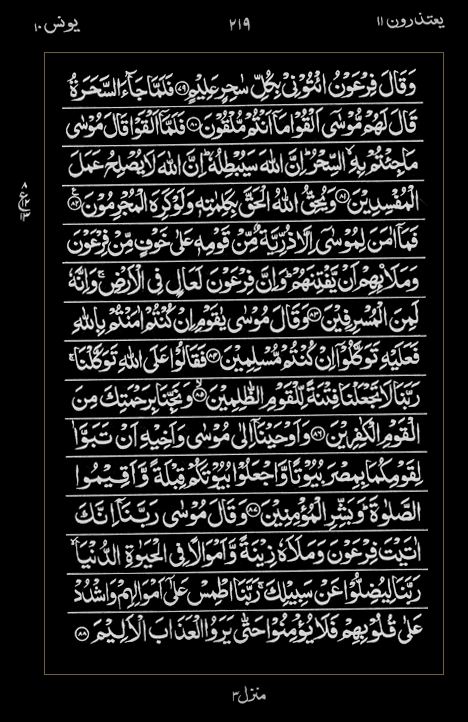 یعتذرون ۱۱
۲۱۹
یونس ۱۰
وَقَالَ فِرْعَوْنُ ائْتُوْنِیْ بِكُلِّ سٰحِرٍ عَلِیْمٍ ﴿۷۹﴾ فَلَمَّا جَآءَ السَّحَرَةُ
قَالَ لَهُمْ مُّوْسٰۤی اَلْقُوْا مَاۤ اَنْتُمْ مُّلْقُوْنَ ﴿۸۰﴾ فَلَمَّاۤ اَلْقَوْا قَالَ مُوْسٰی
مَا جِئْتُمْ بِهِ ۙ السِّحْرُ ؕ اِنَّ اللّٰهَ سَیُبْطِلُهٗ ؕ اِنَّ اللّٰهَ لَا یُصْلِحُ عَمَلَ
الْمُفْسِدِیْنَ ﴿۸۱﴾ وَیُحِقُّ اللّٰهُ الْحَقَّ بِكَلِمٰتِهٖ وَلَوْ كَرِهَ الْمُجْرِمُوْنَ ﴿۸۲﴾
۸
ع
۱۲
۱۳
فَمَاۤ اٰمَنَ لِمُوْسٰۤی اِلَّا ذُرِّیَّةٌ مِّنْ قَوْمِهٖ عَلٰی خَوْفٍ مِّنْ فِرْعَوْنَ
وَمَلَا۟ىِٕهِمْ اَنْ یَّفْتِنَهُمْ ؕ وَاِنَّ فِرْعَوْنَ لَعَالٍ فِی الْاَرْضِ ۚ وَاِنَّهٗ
لَمِنَ الْمُسْرِفِیْنَ ﴿۸۳﴾ وَقَالَ مُوْسٰی یٰقَوْمِ اِنْ كُنْتُمْ اٰمَنْتُمْ بِاللّٰهِ
فَعَلَیْهِ تَوَكَّلُوْۤا اِنْ كُنْتُمْ مُّسْلِمِیْنَ ﴿۸۴﴾ فَقَالُوْا عَلَی اللّٰهِ تَوَكَّلْنَا ۚ
رَبَّنَا لَا تَجْعَلْنَا فِتْنَةً لِّلْقَوْمِ الظّٰلِمِیْنَ ﴿۸۵﴾ وَنَجِّنَا بِرَحْمَتِكَ مِنَ
الْقَوْمِ الْكٰفِرِیْنَ ﴿۸۶﴾ وَاَوْحَیْنَاۤ اِلٰی مُوْسٰی وَاَخِیْهِ اَنْ تَبَوَّاٰ
لِقَوْمِكُمَا بِمِصْرَ بُیُوْتًا وَّاجْعَلُوْا بُیُوْتَكُمْ قِبْلَةً وَّاَقِیْمُوا
الصَّلٰوةَ ؕ وَبَشِّرِ الْمُؤْمِنِیْنَ ﴿۸۷﴾ وَقَالَ مُوْسٰی رَبَّنَاۤ اِنَّكَ
اٰتَیْتَ فِرْعَوْنَ وَمَلَاَهٗ زِیْنَةً وَّاَمْوَالًا فِی الْحَیٰوةِ الدُّنْیَا ۙ
رَبَّنَا لِیُضِلُّوْا عَنْ سَبِیْلِكَ ۚ رَبَّنَا اطْمِسْ عَلٰۤی اَمْوَالِهِمْ وَاشْدُدْ
عَلٰی قُلُوْبِهِمْ فَلَا یُؤْمِنُوْا حَتّٰی یَرَوُا الْعَذَابَ الْاَلِیْمَ ﴿۸۸﴾
منزل ۳